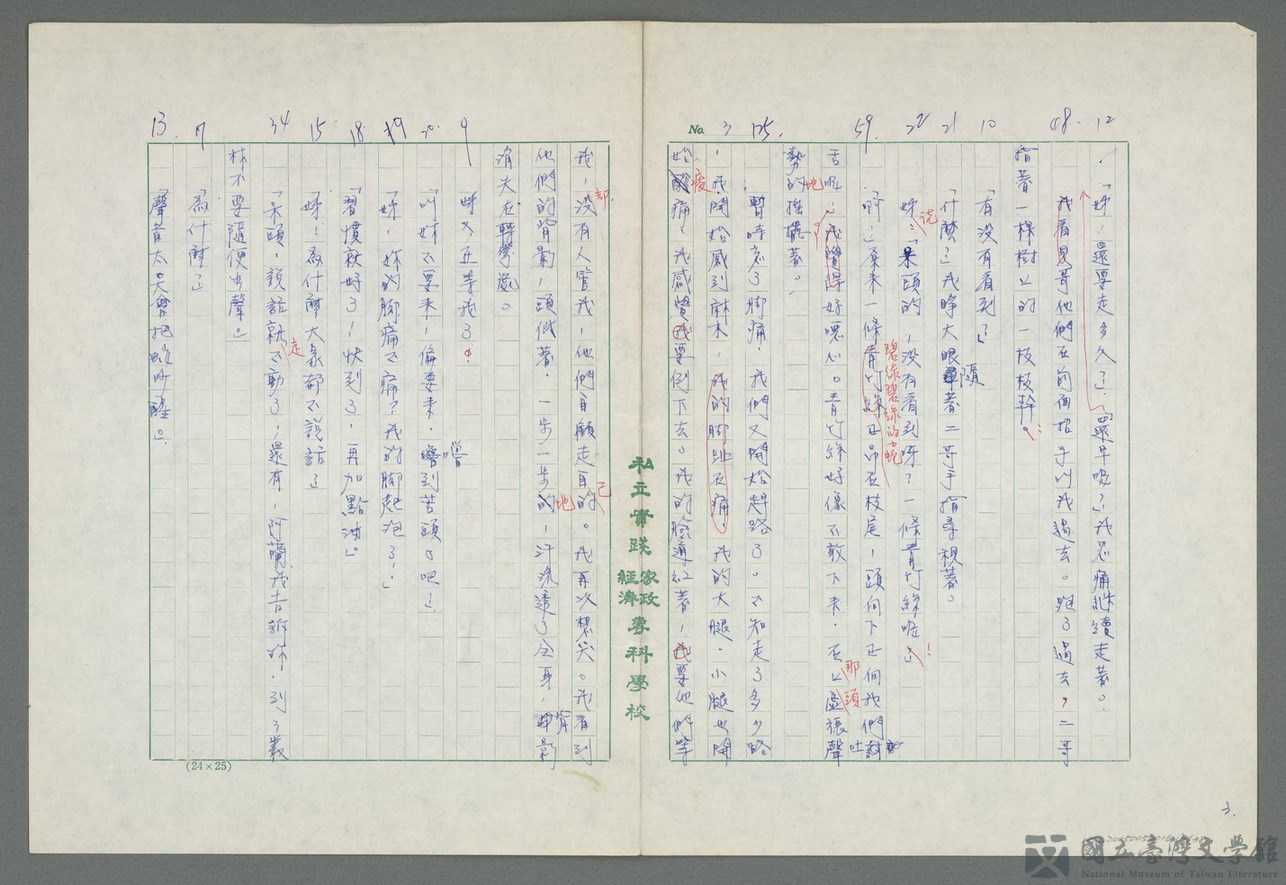 12
48.
10
21
22
59.
125.
No. 3
「姊！還要走多久？」「還早呢？」我忍痛繼續走著。
我看見哥他們在前面招手叫我過去。跑了過去，二哥
指著一棵樹上的一枝枝幹。！
「有没有看到？」
「什麼？」我睜大眼隨著二哥手指尋視著。
姊說：「呆頭的，没有看到呀？一條青竹絲呢！」
碧綠碧綠的蛇
「啊！」原來一條青竹絲正吊在枝尾，頭向下正向我們吐
舌呢！我覺得好噁心。青竹絲好像不敢下來，在上那頭虛張聲
勢的地搖擺著。
暫時忘了脚痛，我們又開始趕路了。不知走了多少路
，我開始感到麻木，我的脚趾在痛，我的大腿、小腿也開
始痠痛，我感覺我要倒下去。我的臉通紅著，我要他們等
私立實踐家政經濟專科學校
我，没有人管我，他們自顧走自己的。我再次想哭。我看到
都
他們的背影，頭低著，一步一步的地，汗流透了全身，背影
消失在轉彎處。
姊又在等我了。
「叫妳不要來，偏要來，嚐到苦頭了吧！」
「姊，妳的脚痛不痛？我的脚起泡了！」
「習慣就好了！快到了，再加點油。」
「姊！為什麼大家都不說話？」
「呆頭，說話就走不動了，還有，阿蘭我告訴妳，到了叢
林不要隨便出聲。」
「為什麼？」
「聲音太大會把蛇吵醒。」
9
20.
19
18
15
34
7
13.
(24×25)
3.
國立臺灣文學館
National Museum of Taiwan Literature